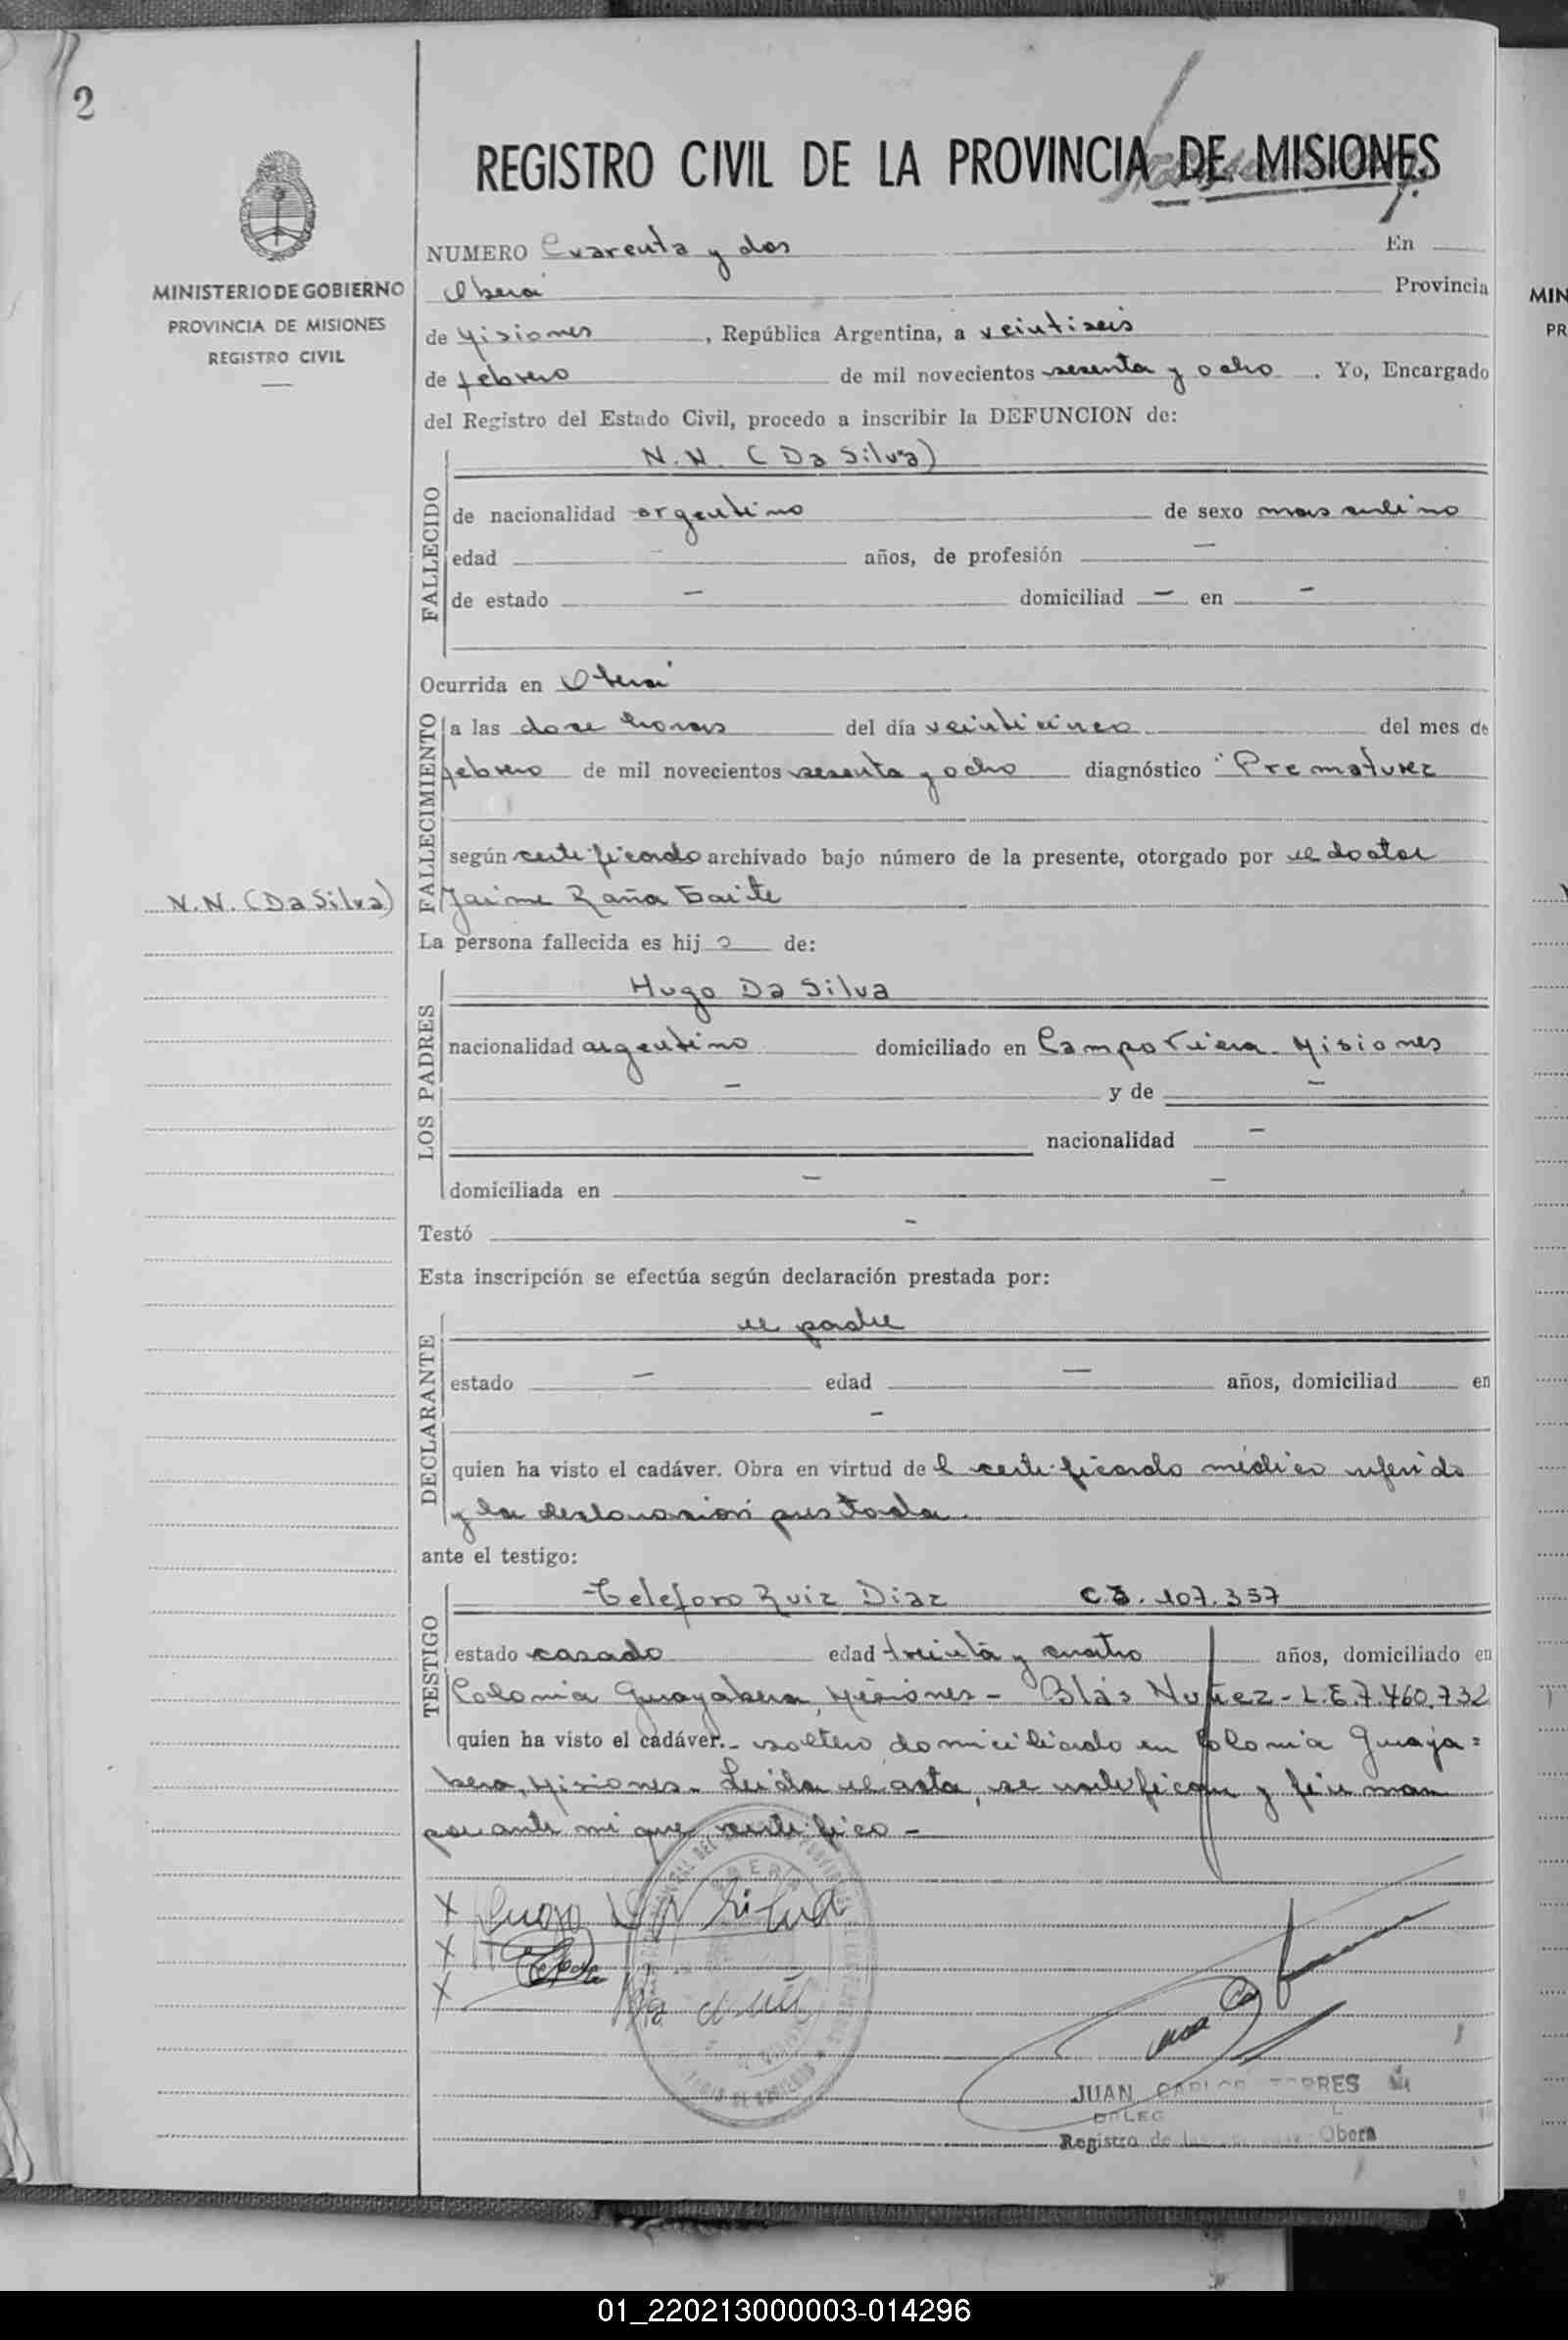 2
REGISTRO CIVIL DE LA PROVINCIA DE MISIONES
MINISTERIO DE GOBIERNO
PROVINCIA DE MISIONES
REGISTRO CIVIL
NUMERO Cuarenta y dos En
Oberá Provincia
de Misiones, República Argentina, a veintiseis
de febrero de mil novecientos sesenta y ocho. Yo, Encargado
del Registro del Estado Civil, procedo a inscribir la DEFUNCION de:
FALLECIDO
N.N. (Da Silva)
de nacionalidad argentino de sexo masculino
edad — años, de profesión —
de estado — domiciliad — en —
Ocurrida en Oberá
FALLECIMIENTO
a las doce horas del día veinticinco del mes de
febrero de mil novecientos sesenta y ocho diagnóstico Prematurez
según certificado archivado bajo número de la presente, otorgado por el doctor
Jaime Raña
N.N. (Da Silva)
La persona fallecida es hijo de:
LOS PADRES
Hugo Da Silva
nacionalidad argentino domiciliado en Campo Viera - Misiones
— y de —
nacionalidad —
domiciliada en — —
Testó —
Esta inscripción se efectúa según declaración prestada por:
DECLARANTE
el padre
estado — edad — años, domiciliad en
—
quien ha visto el cadáver. Obra en virtud del certificado médico referido
y la declaración prestada.
ante el testigo:
TESTIGO
Teleforo Ruiz Diaz C.I. 107.357
estado casado edad treinta y cuatro años, domiciliado en
Colonia Guayabera, Misiones - Blás Nuñez - L.E.7.460.732
quien ha visto el cadáver. - soltero, domiciliado en Colonia Guaya=
bera, Misiones. Leida el acta, se ratifican y firman
por ante mi que certifico -
X Hugo Da Silva
X
X
JUAN CARLOS TORRES
Registro de Oberá
MIN
PR
01_220213000003-014296